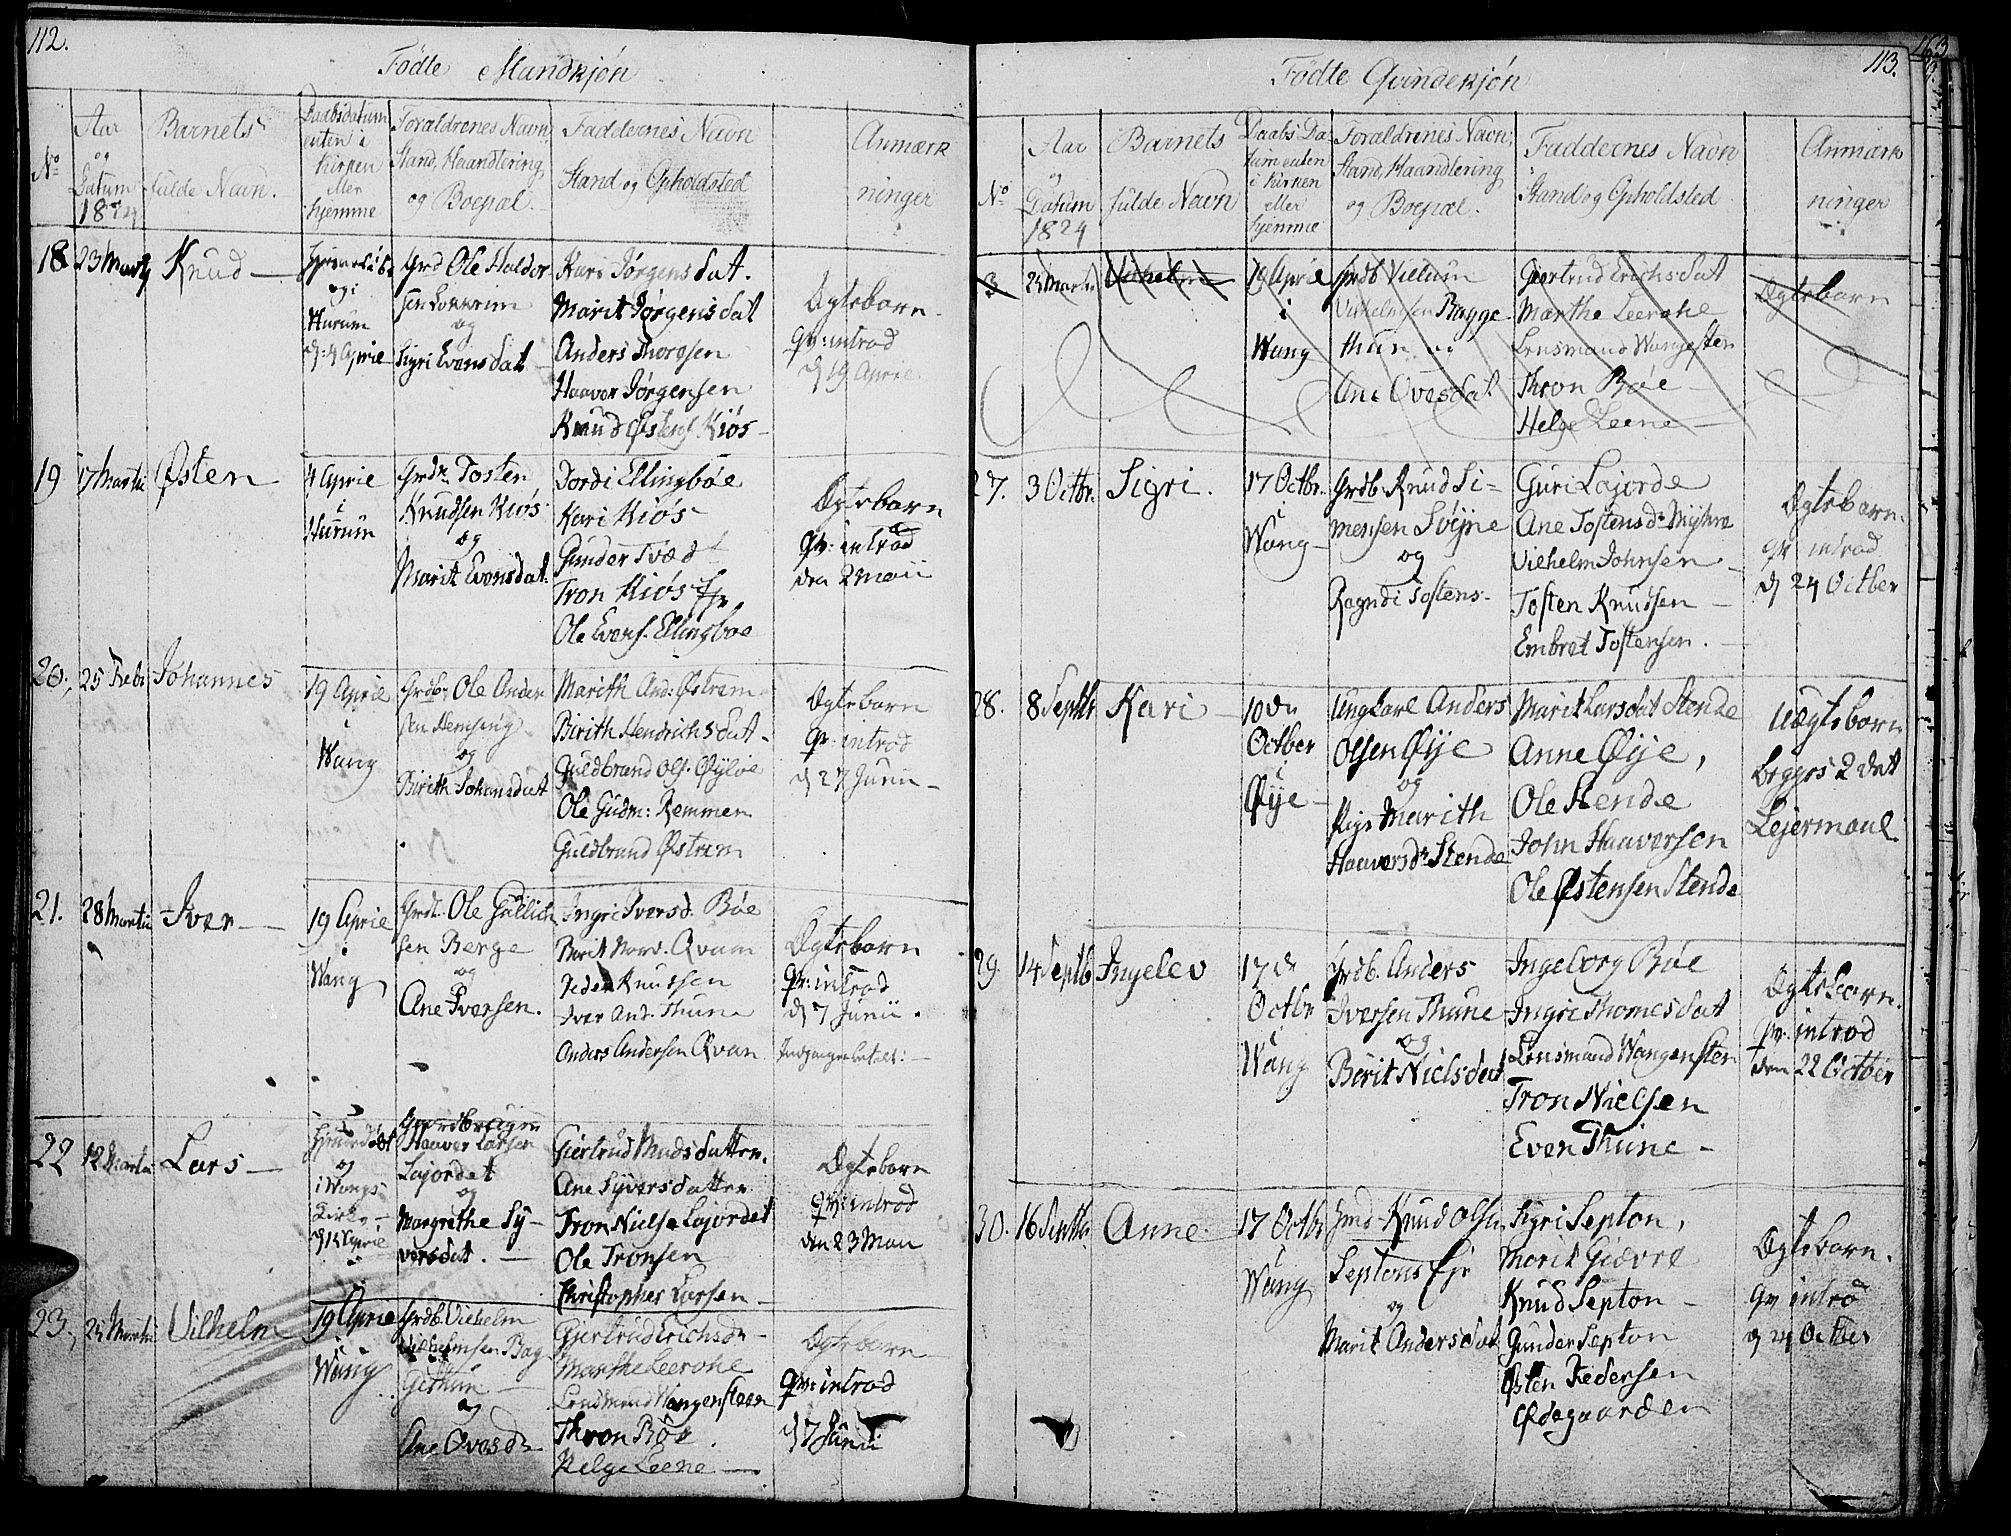 112.
Födte Mandkjön
No
Aar
og
Datum
1824
Barnets
fulde Navn.
Daabsdatum
enten i
Kirken
eller
hjemme
Foraldrenes Navn
Stand, Haandtering,
og Boepæl.
Faddernes Navn
Stand og Opholdsted
Anmærk
ninger
18 23 Marty Knud
og i
Hurum
d: 4 Aprie
Grd Ole Haldor
sen
og
Sigri Evensdat
Kari Jörgensdat.
Marit Jörgensdat
Anders Thoresen
Haavor Jörgensen
Knud Østens. Kiös
Ægtebarn
Qv: introd
d 19 Aprie
19 17 Martii Østen
4 Aprie
i
Hurum
Grdr. Tosten
Knudsen Kiös
og
Marit Evensdat.
Dordi Ellingböe
Kari Kiös
Gunder Tvæd
Tron Kiös
Ole Evens. Ellingboe
Ægtebarn
Qv: introd
den 2 Maii
20. 25 Febr Johannes
19 Aprie
i
Wang
Grdb. Ole Ander
sen Hemsing
og
Birith Johansdat
Marith And: Østrem
Birith Hendrichsdat.
Guldbrand Ols. Øyloe
Ole Gudm: Remmen
Guldbrand Østrem
Ægtebarn
Qv: introd
d 27 Junii
21. 28 Martii Iver
19 Aprie
i
Wang
Grdb. Ole Gullich
sen Berge
og
Ane Iversen.
Ingri Iversd. Böe
Berit Qvam
Peder Knudsen
Iver And. Thune
Anders Andersen Qvam
Ægtebarn
Qv: introd
d 7 Junii.
22 12 Martii Lars
Hjemmedöbt
og
i Wangs
Kirke
d 18 Aprie
Gaardbruger
Haavor Larsen
Lajordet
og
Margrethe Sy-
versdat.
Giertrud Madsdatter.
Ane Syversdatter
Tron Nielse Lajordet
Ole Tronsen
Christopher Larsen
Ægtebarn
Qv: introd
den 23 Maii
23, 24 Martii Vilhelm
19 Aprie
i
Wang
Grdb. Vilhelm
Vilhelmsen Bag
gethun
og
Ane Ovesdr
Gjertrud Erichsdr
Marthe Leerohe
Lendsmand Wangensteen
Thron Böe
Helge Leene
Ægtebarn
Qv: introd
d 7 Junii
113.
Födte Qvindekjön
No
Aar
og
Datum
1824
Barnets
fulde Navn
Daabs Da-
tum enten
i Kirken
eller
hjemme
Foraldrenes Navn,
Stand, Haandtering
og Boepæl.
Faddernes Navn
Stand og Opholdsted
Anmærk
ninger
3 24 Martii Vilhelm
19 Aprie
i
Wang
Grdb. Vielum
Vilhelmsen Bagge
thun
Ane Ovesdat
Giertrud Erichsdat
Marthe Leerohe
Lensmand Wangesten
Thron Böe
Helge Leene
Ægtebarn
27. 3 Octbr. Sigri.
17 Octbr.
i
Wang
Grdb. Knud Si-
mensen Söyne
og
Ragndi Tostens-
Guri Lajorde
Ane Tostensdr
Vilhelm Johnsen
Tosten Knudsen
Embret Tostensen.
Ægtebarn.
Qv introd
d 24 October
28. 8 Septbr Kari
10 de
October
i
Øye
Ungkarl Anders
Olsen Øye
og
Pige Marith
Haaversdr Stende
Marit Larsdat Stende
Anne Øye,
Ole Stende
John Haaversen
Ole Østensen Stende
Uægtebarn
begges 2 det
Lejermaal
29. 14 Septb Ingelev
17 de
Octbr
i
Wang
Grdb. Anders
Iversen Thune
og
Berit Nielsdat
Ingeborg Böe
Ingri Thomesdat
Lensmand Wangensten
Tron Nielsen
Even Thune
Ægtebarn.
Qv. introd
den 22 October
30. 16 Septbr Anne.
17 Octbr
i
Wang
Knud Olsen
Septons Eje
og
Marit Andersdat
Sigri Septon,
Marit Giövre
Knud Septon
Gunder Septon
Østen Pedersen
Ødegaarden
Ægtebarn.
Qv introd
d 24 October